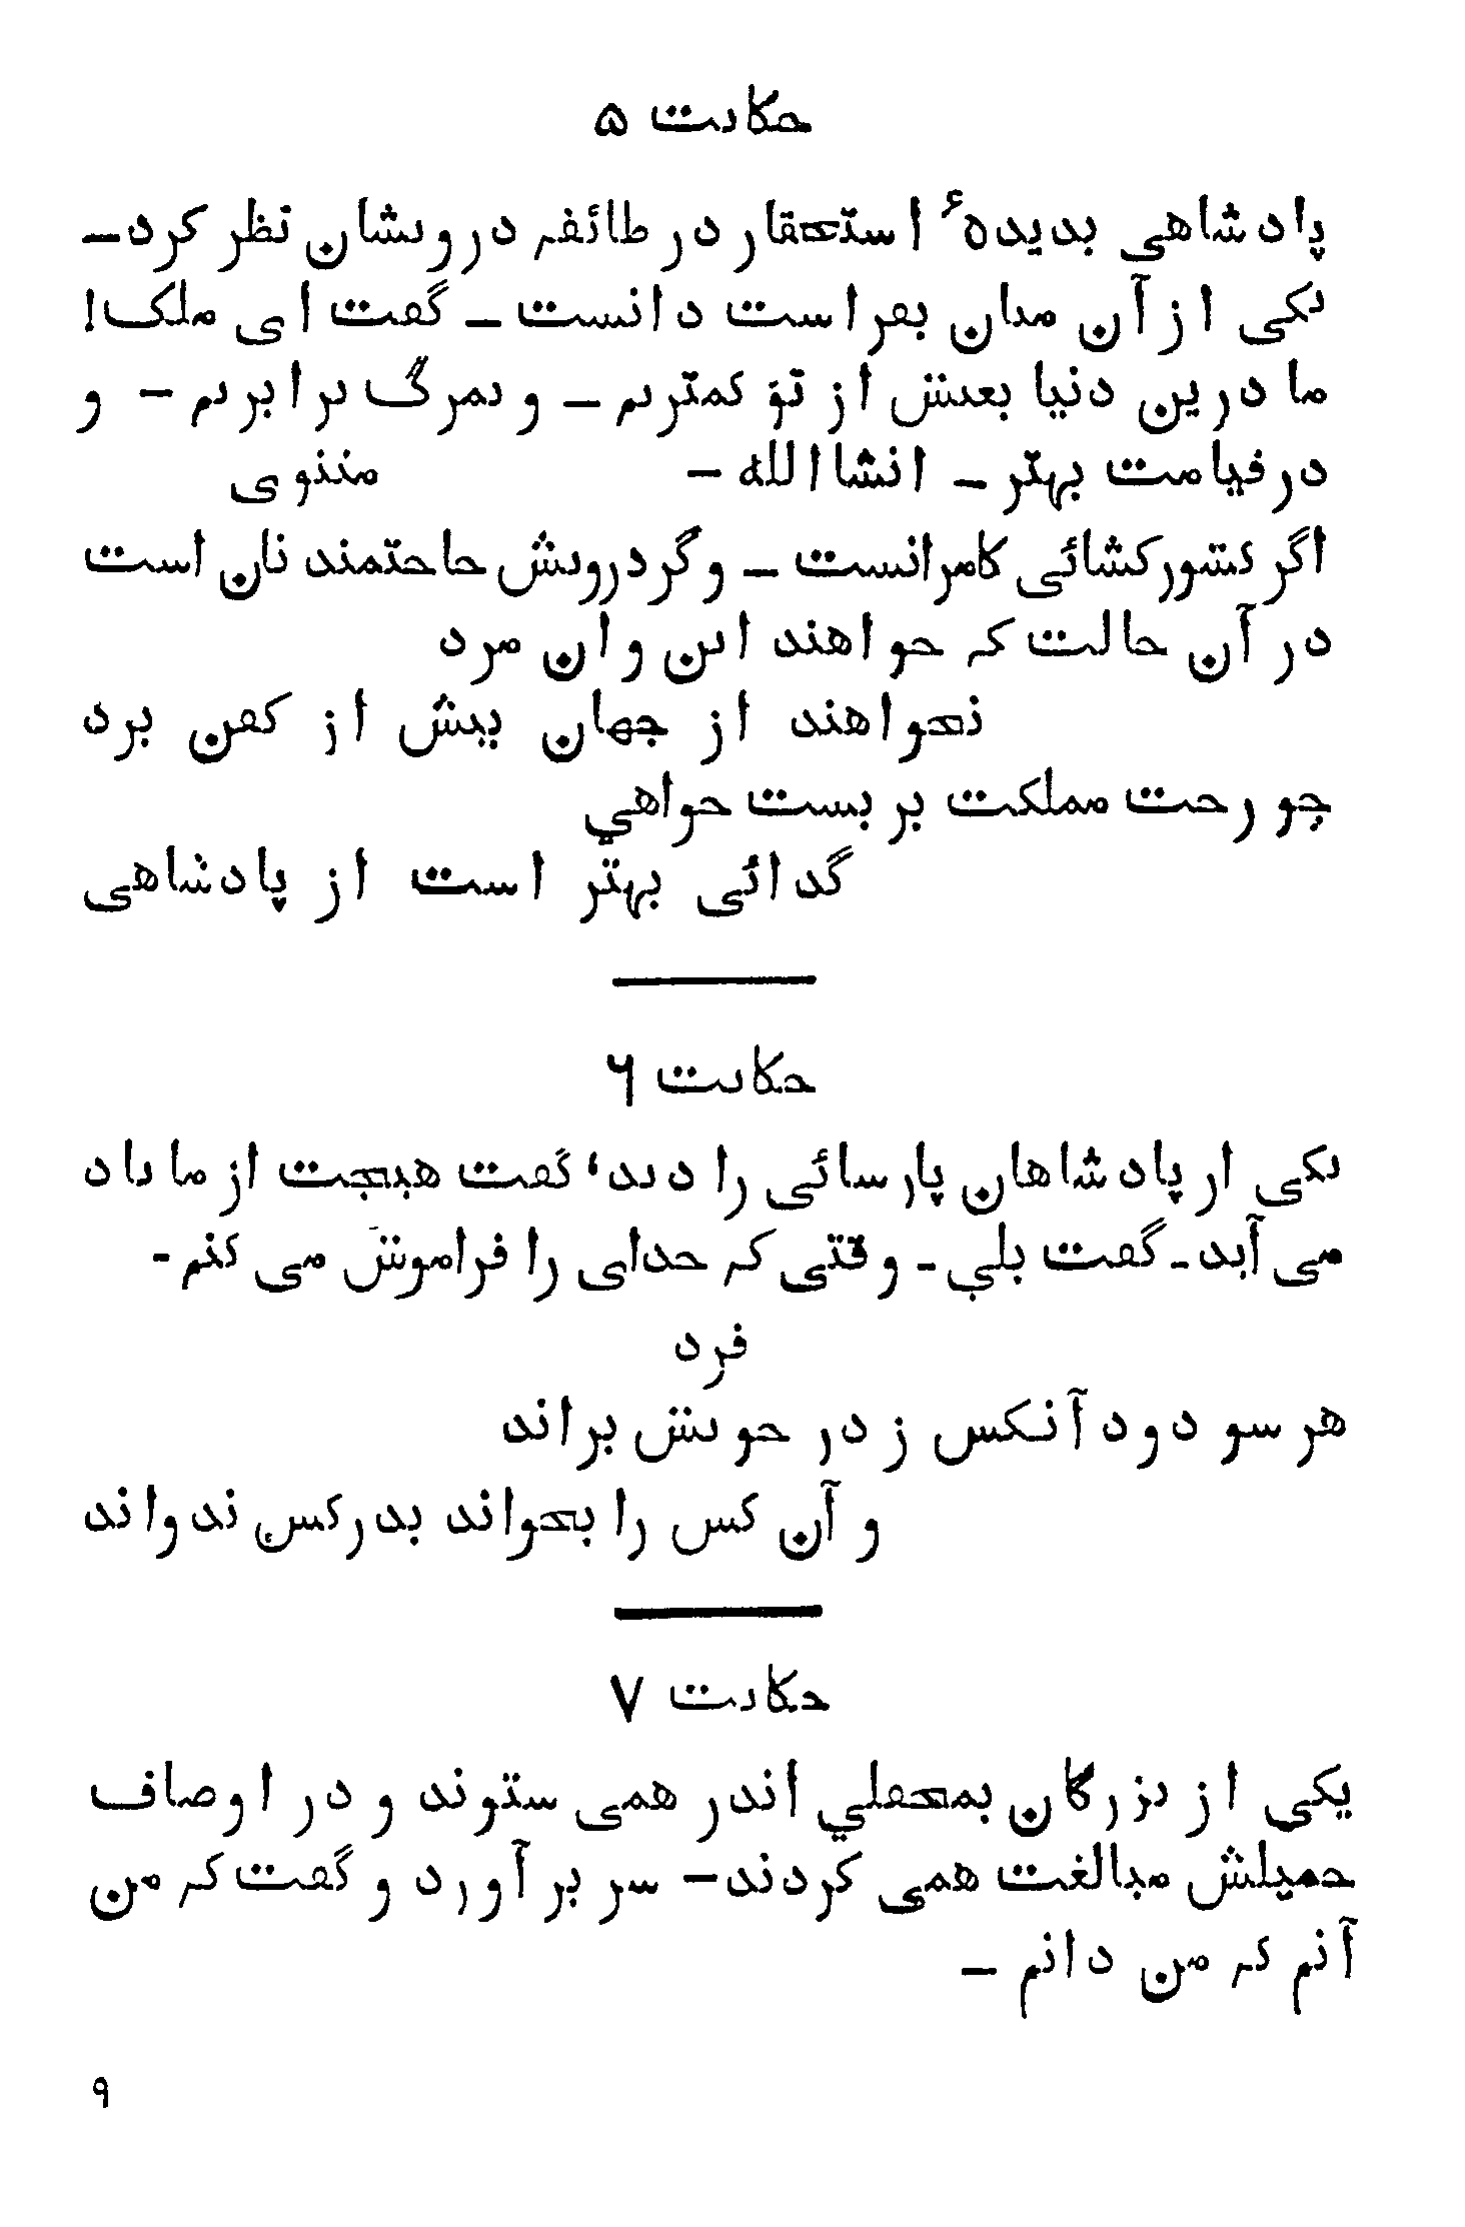 حکایت ۵
پادشاهی بدیدهٔ استحقار در طائفہ درویشان نظر کرد۔
یکی از آن میان بفراست دانست ۔ گفت ای ملک!
ما درین دنیا بعیش از تو کمتریم ۔ و بمرگ برابریم ۔ و
درقیامت بہتر ۔ انشااللہ ۔ مثنوی
اگر کشورکشائی کامرانست ۔ وگردرویش حاجتمند نان است
در آن حالت کہ خواهند این وان مرد
نخواهند از جهان بیش از کفن برد
چو رخت مملکت بر بست خواهي
گدائی بہتر است از پادشاهی
حکایت ۶
یکی از پادشاهان پارسائی را دید، گفت هیچت از ما یاد
می آید۔ گفت بلي ۔ وقتی کہ خدای را فراموش می کنم ۔
فرد
هر سو دود آنکس ز در خویش براند
و آن کس را بخواند بدرکس ندواند
حکایت ۷
یکی از بزرگان بمحفلي اندر همی ستوند و در اوصاف
جمیلش مبالغت همی کردند۔ سر بر آورد و گفت کہ من
آنم کہ من دانم ۔
۹